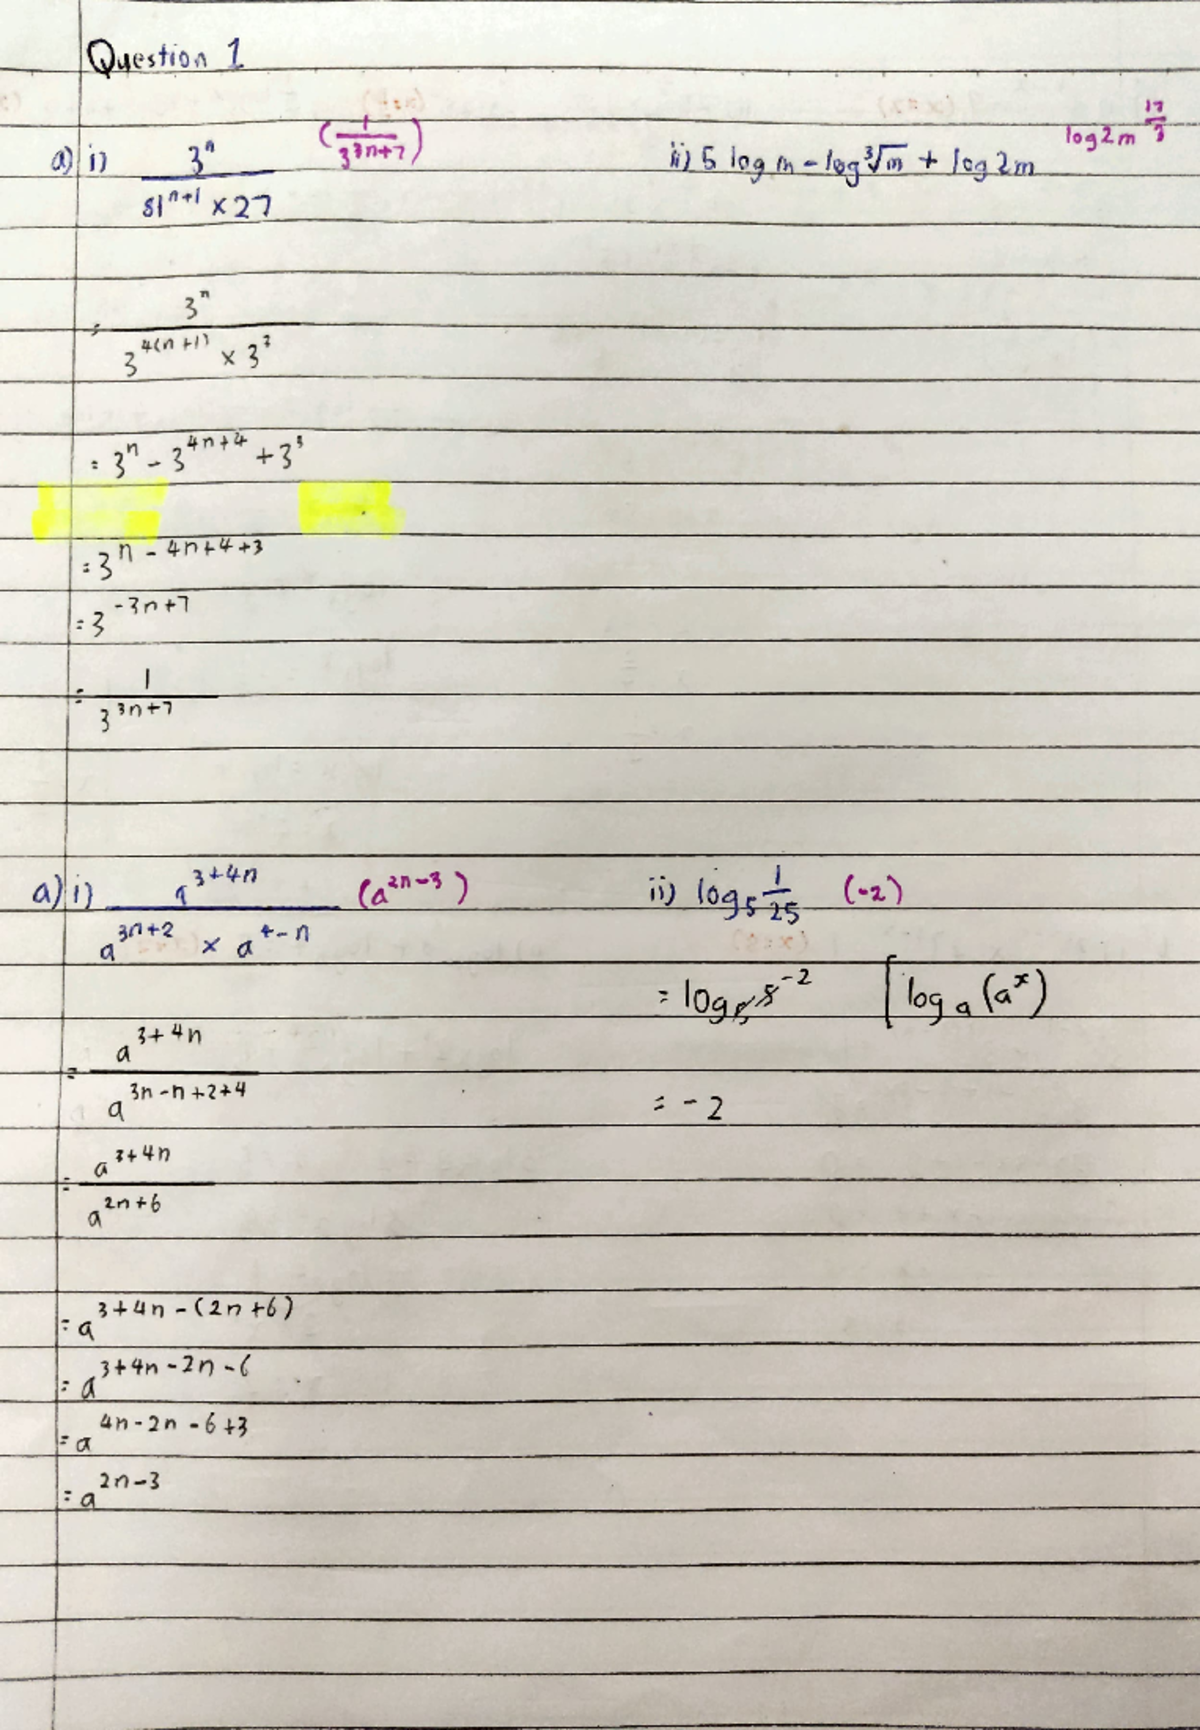 Question 1
a) i) 3^n / 81^(n+1) × 27 (1 / 3^(3n+7))
= 3^n / 3^(4(n+1)) × 3^3
= 3^n - 3^(4n+4) + 3^3
= 3^(n - 4n+4+3)
= 3^(-3n+7)
= 1 / 3^(3n+7)
ii) 5 log m - log ∛m + log 2m log 2m^(17/3)
a) i) a^(3+4n) / a^(3n+2) × a^(4-n) (a^(2n-3))
= a^(3+4n) / a^(3n-n+2+4)
= a^(3+4n) / a^(2n+6)
= a^(3+4n-(2n+6))
= a^(3+4n-2n-6)
= a^(4n-2n-6+3)
= a^(2n-3)
ii) log₅ 1/25 (-2)
= log₅ 5^(-2) [log_a (a^x)
= -2